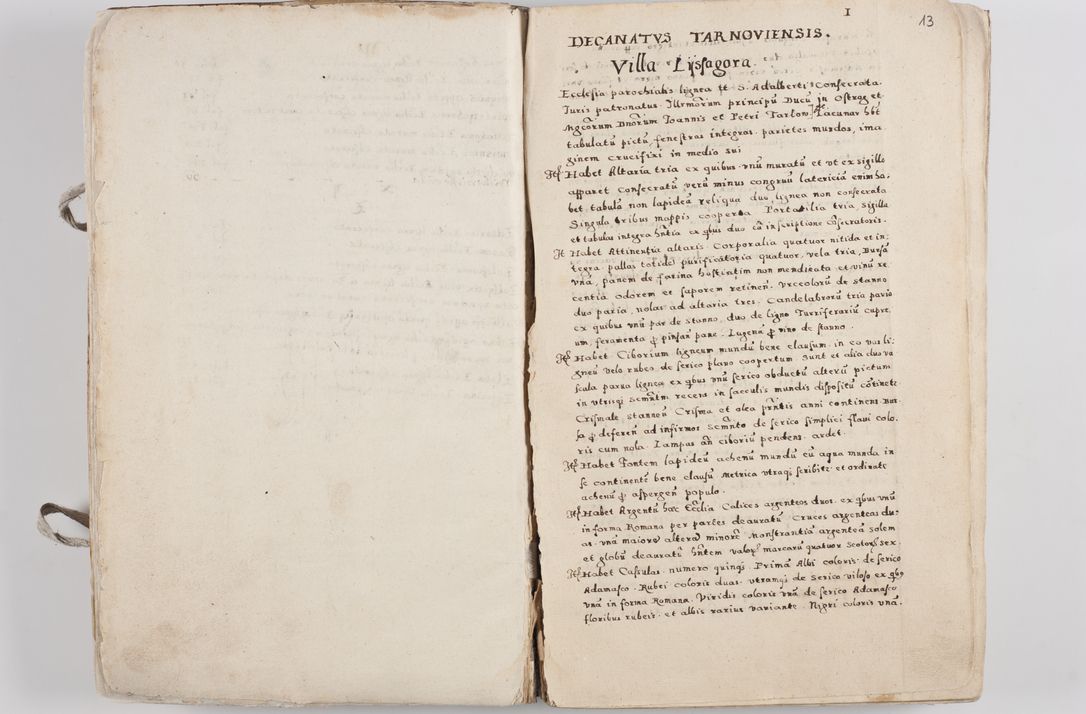 I
13
DECANATVS TARNOVIENSIS.
Villa Lissagora.
Ecclesia parochialis lignea tt S. Adalberti Consecrata.
Iuris patronatus Illrmorum principũ Ducũ in Ostrog et
Mgcorum Dnorum Ioannis et Petri Tarlow. Lacunar hbt
tabulatũ pictũ, fenestras integras parietes mundos, ima
ginem crucifixi in medio sui
Itẽ Habet Altaria tria ex quibus vnũ muratũ et vt ex sigillo
apparet Consecratũ verũ minus congruũ latericiã enim ha,
bet tabulã non lapideã reliqua duo lignea non consecrata
Singula tribus mappis cooperta Portatilia tria, sigilla
et tabulas integra hñtia ex qbus duo cũ inscriptione cõsecratoris.
It Habet Attinentia altaris. Corporalia quatuor nitida et in:
tegra, pallas totidẽ purificatoria quatuor, vela tria, Bursã
vnã, panem de farina hostiatim non mendicata et vinũ re
centiã odorem et saporem retinen. vrceolorũ de stanno
duo paria, nolas ad altaria tres, Candelabrorũ tria paria
ex quibus vnũ par de stanno, duo de ligno Turriferariũ cupre,
um, feramenta p pinsan pane. Lagenã p vino de stanno.
Itẽ Habet Ciborium ligneum mundũ bene clausum. in eo vas li:
gneũ velo rubeo de serico plano coopertum. sunt et alia duo va
scula parua lignea ex qbus vnũ serico obductũ alterũ pictum
in vtrisqj Scmñtm recens in sacculis mundis dispositũ cõtinetr
Crismale stanneũ Crisma et olea prñtis anni continens. Bur.
sa p deferen ad infirmos Scmñto de serico simplici flaui colo:
ris cum nola. Lampas añ ciboriũ pendens ardet.
Itẽ Habet Fontem lapideũ achenũ mundũ cũ aqua munda in
se continentẽ bene clausũ Metrica vtraqj scribitr et ordinate
achenũ p aspergen populo.
Itẽ Habet Argentũ hæc Ecclia Calices argenteos duos. ex qbus vnũ
in forma Romana per partes deauratũ. Cruces argenteas du:
as. vnã maiorẽ alterã minorẽ. Monstrantiã argenteã solem
et globũ deauratũ hñtem valor marcarũ quatuor Scotor sex.
Itẽ Habet Casulas numero quinqj. Primã Albi coloris de serico
Adamasco. Rubei coloris duas. vtramqj de serico viloso ex qbus
vnã in forma Romana. Viridis coloris vnã de serico Adamasco
floribus rubeis et albis rarius variante. Nigri coloris vnã.